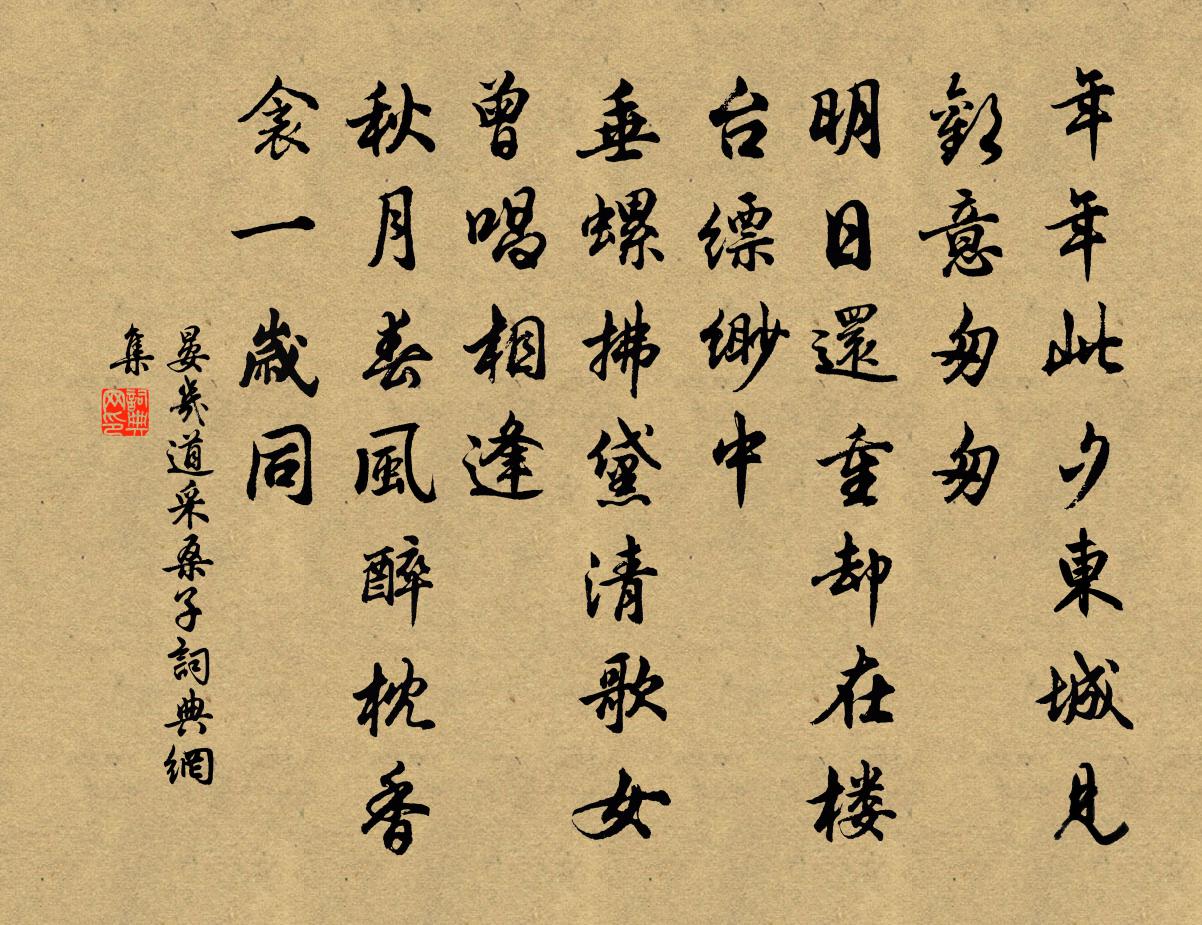 年年此夕東城見
歡意匆匆
明日還重却在楼
台缥缈中
垂螺拂黛清歌女
曾唱相逢
秋月春風醉枕香
衾一歲同
晏幾道采桑子詞典網
集
詞典网印